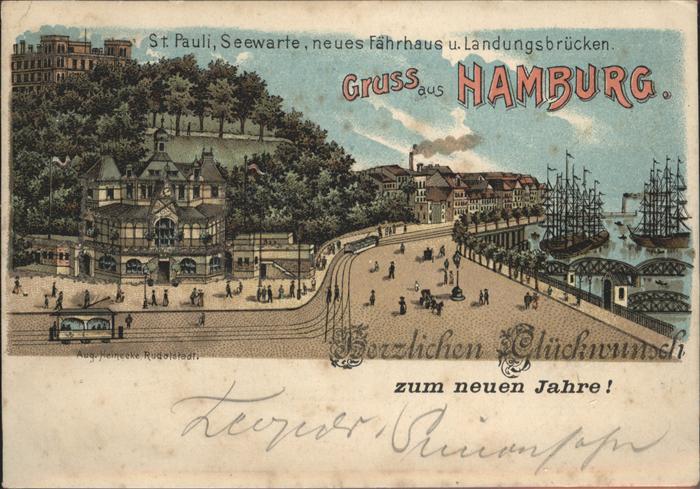 St. Pauli, Seewarte, neues Fährhaus u. Landungsbrücken.
Gruss aus HAMBURG.
Aug. Heinecke, Rudolstadt.
Herzlichen Glückwunsch
zum neuen Jahre!